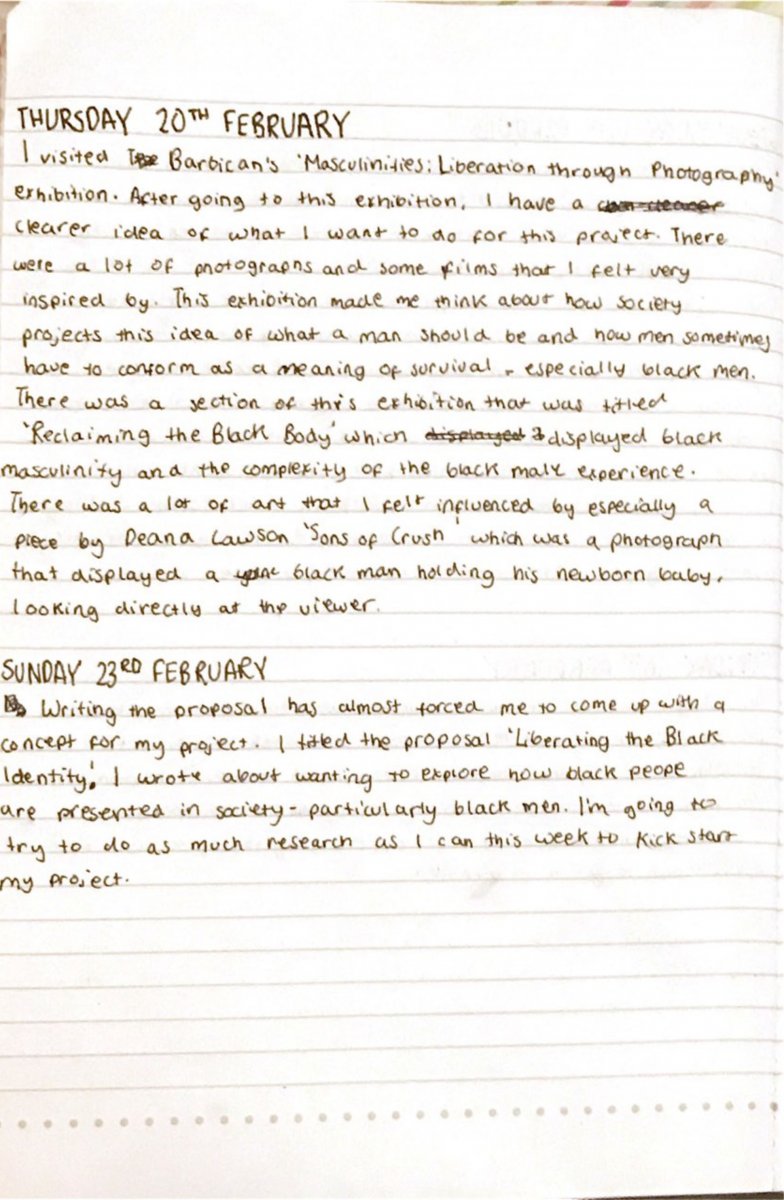 THURSDAY 20TH FEBRUARY
I visited The Barbican's 'Masculinities: Liberation through Photography'
exhibition. After going to this exhibition, I have a
clearer idea of what I want to do for this project. There
were a lot of photographs and some films that I felt very
inspired by. This exhibition made me think about how society
projects this idea of what a man should be and how men sometimes
have to conform as a meaning of survival - especially black men.
There was a section of this exhibition that was titled
'Reclaiming the Black Body' which displayed displayed black
masculinity and the complexity of the black male experience.
There was a lot of art that I felt influenced by especially a
piece by Deana Lawson 'Sons of Crush' which was a photograph
that displayed a black man holding his newborn baby,
looking directly at the viewer.
SUNDAY 23RD FEBRUARY
Writing the proposal has almost forced me to come up with a
concept for my project. I titled the proposal 'Liberating the Black
Identity'. I wrote about wanting to explore how black peope
are presented in society - particularly black men. I'm going to
try to do as much research as I can this week to kick start
my project.